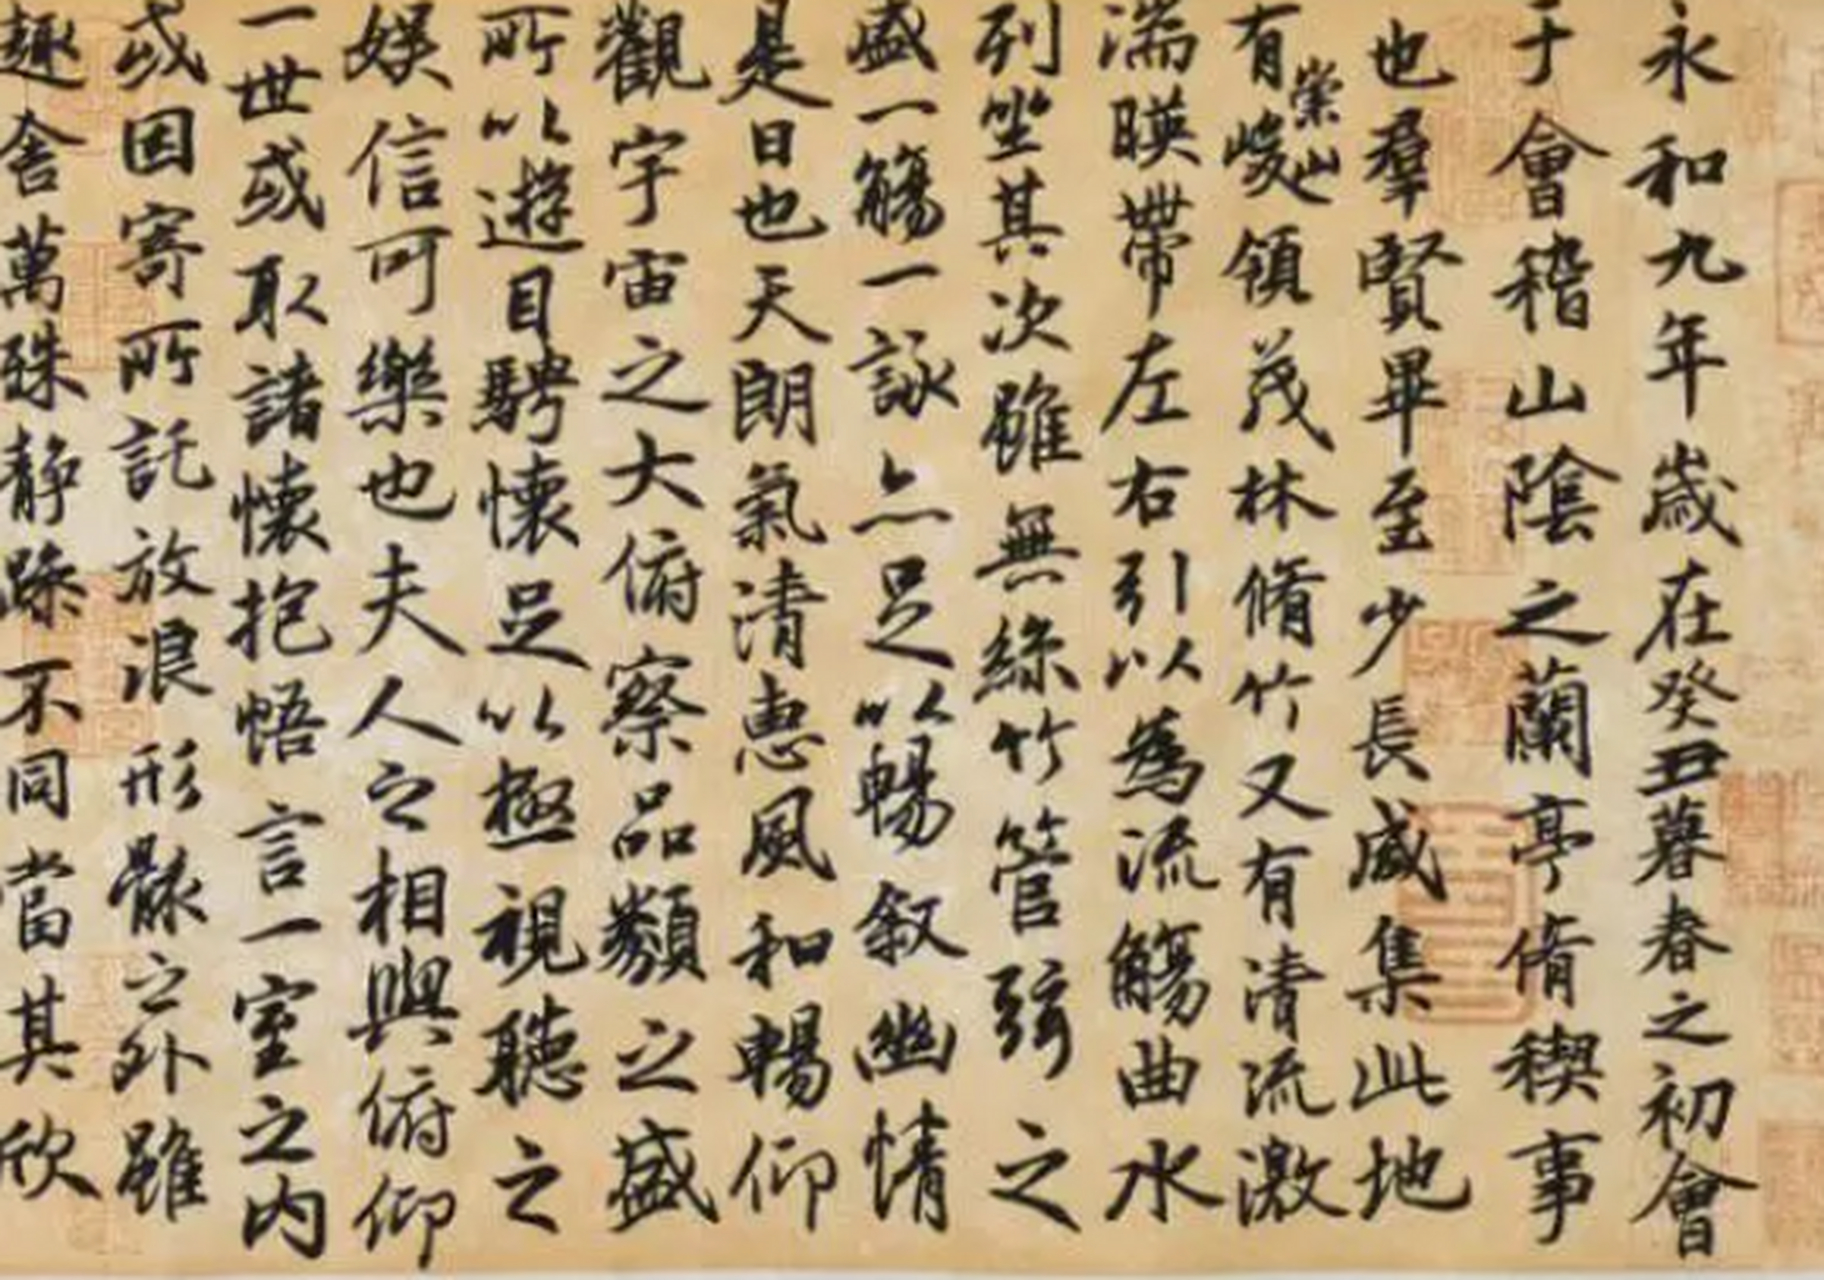 永和九年歲在癸丑暮春之初會
于會稽山陰之蘭亭脩禊事
也羣賢畢至少長咸集此地
有崇山峻領茂林脩竹又有清流激
湍暎帶左右引以為流觴曲水
列坐其次雖無絲竹管弦之
盛一觴一詠亦足以暢叙幽情
是日也天朗氣清惠風和暢仰
觀宇宙之大俯察品類之盛
所以遊目騁懷足以極視聽之
娛信可樂也夫人之相與俯仰
一世或取諸懷抱悟言一室之內
或因寄所託放浪形骸之外雖
趣舍萬殊靜躁不同當其欣